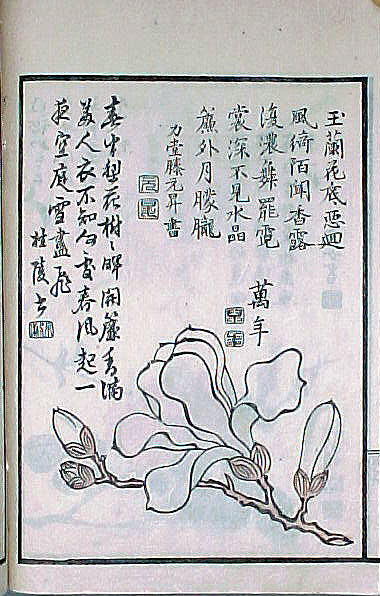 玉蘭花底惡廻
風綺陌聞香露
復濃舞罷霓
裳深不見水晶
簾外月朦朧
力堂滕元昇書
萬年
梨花樹〻暉開簾香滿
美人衣不知何處春風起一
夜空庭雪盡飛
桂陵書